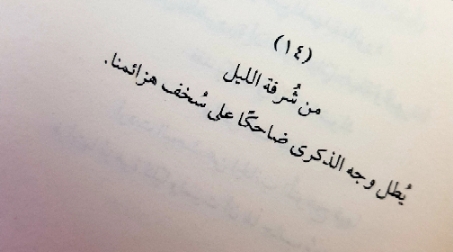 (١٤)
من شُرفة الليل
يُطل وجه الذكرى ضاحكًا على سُخف هزائمنا.